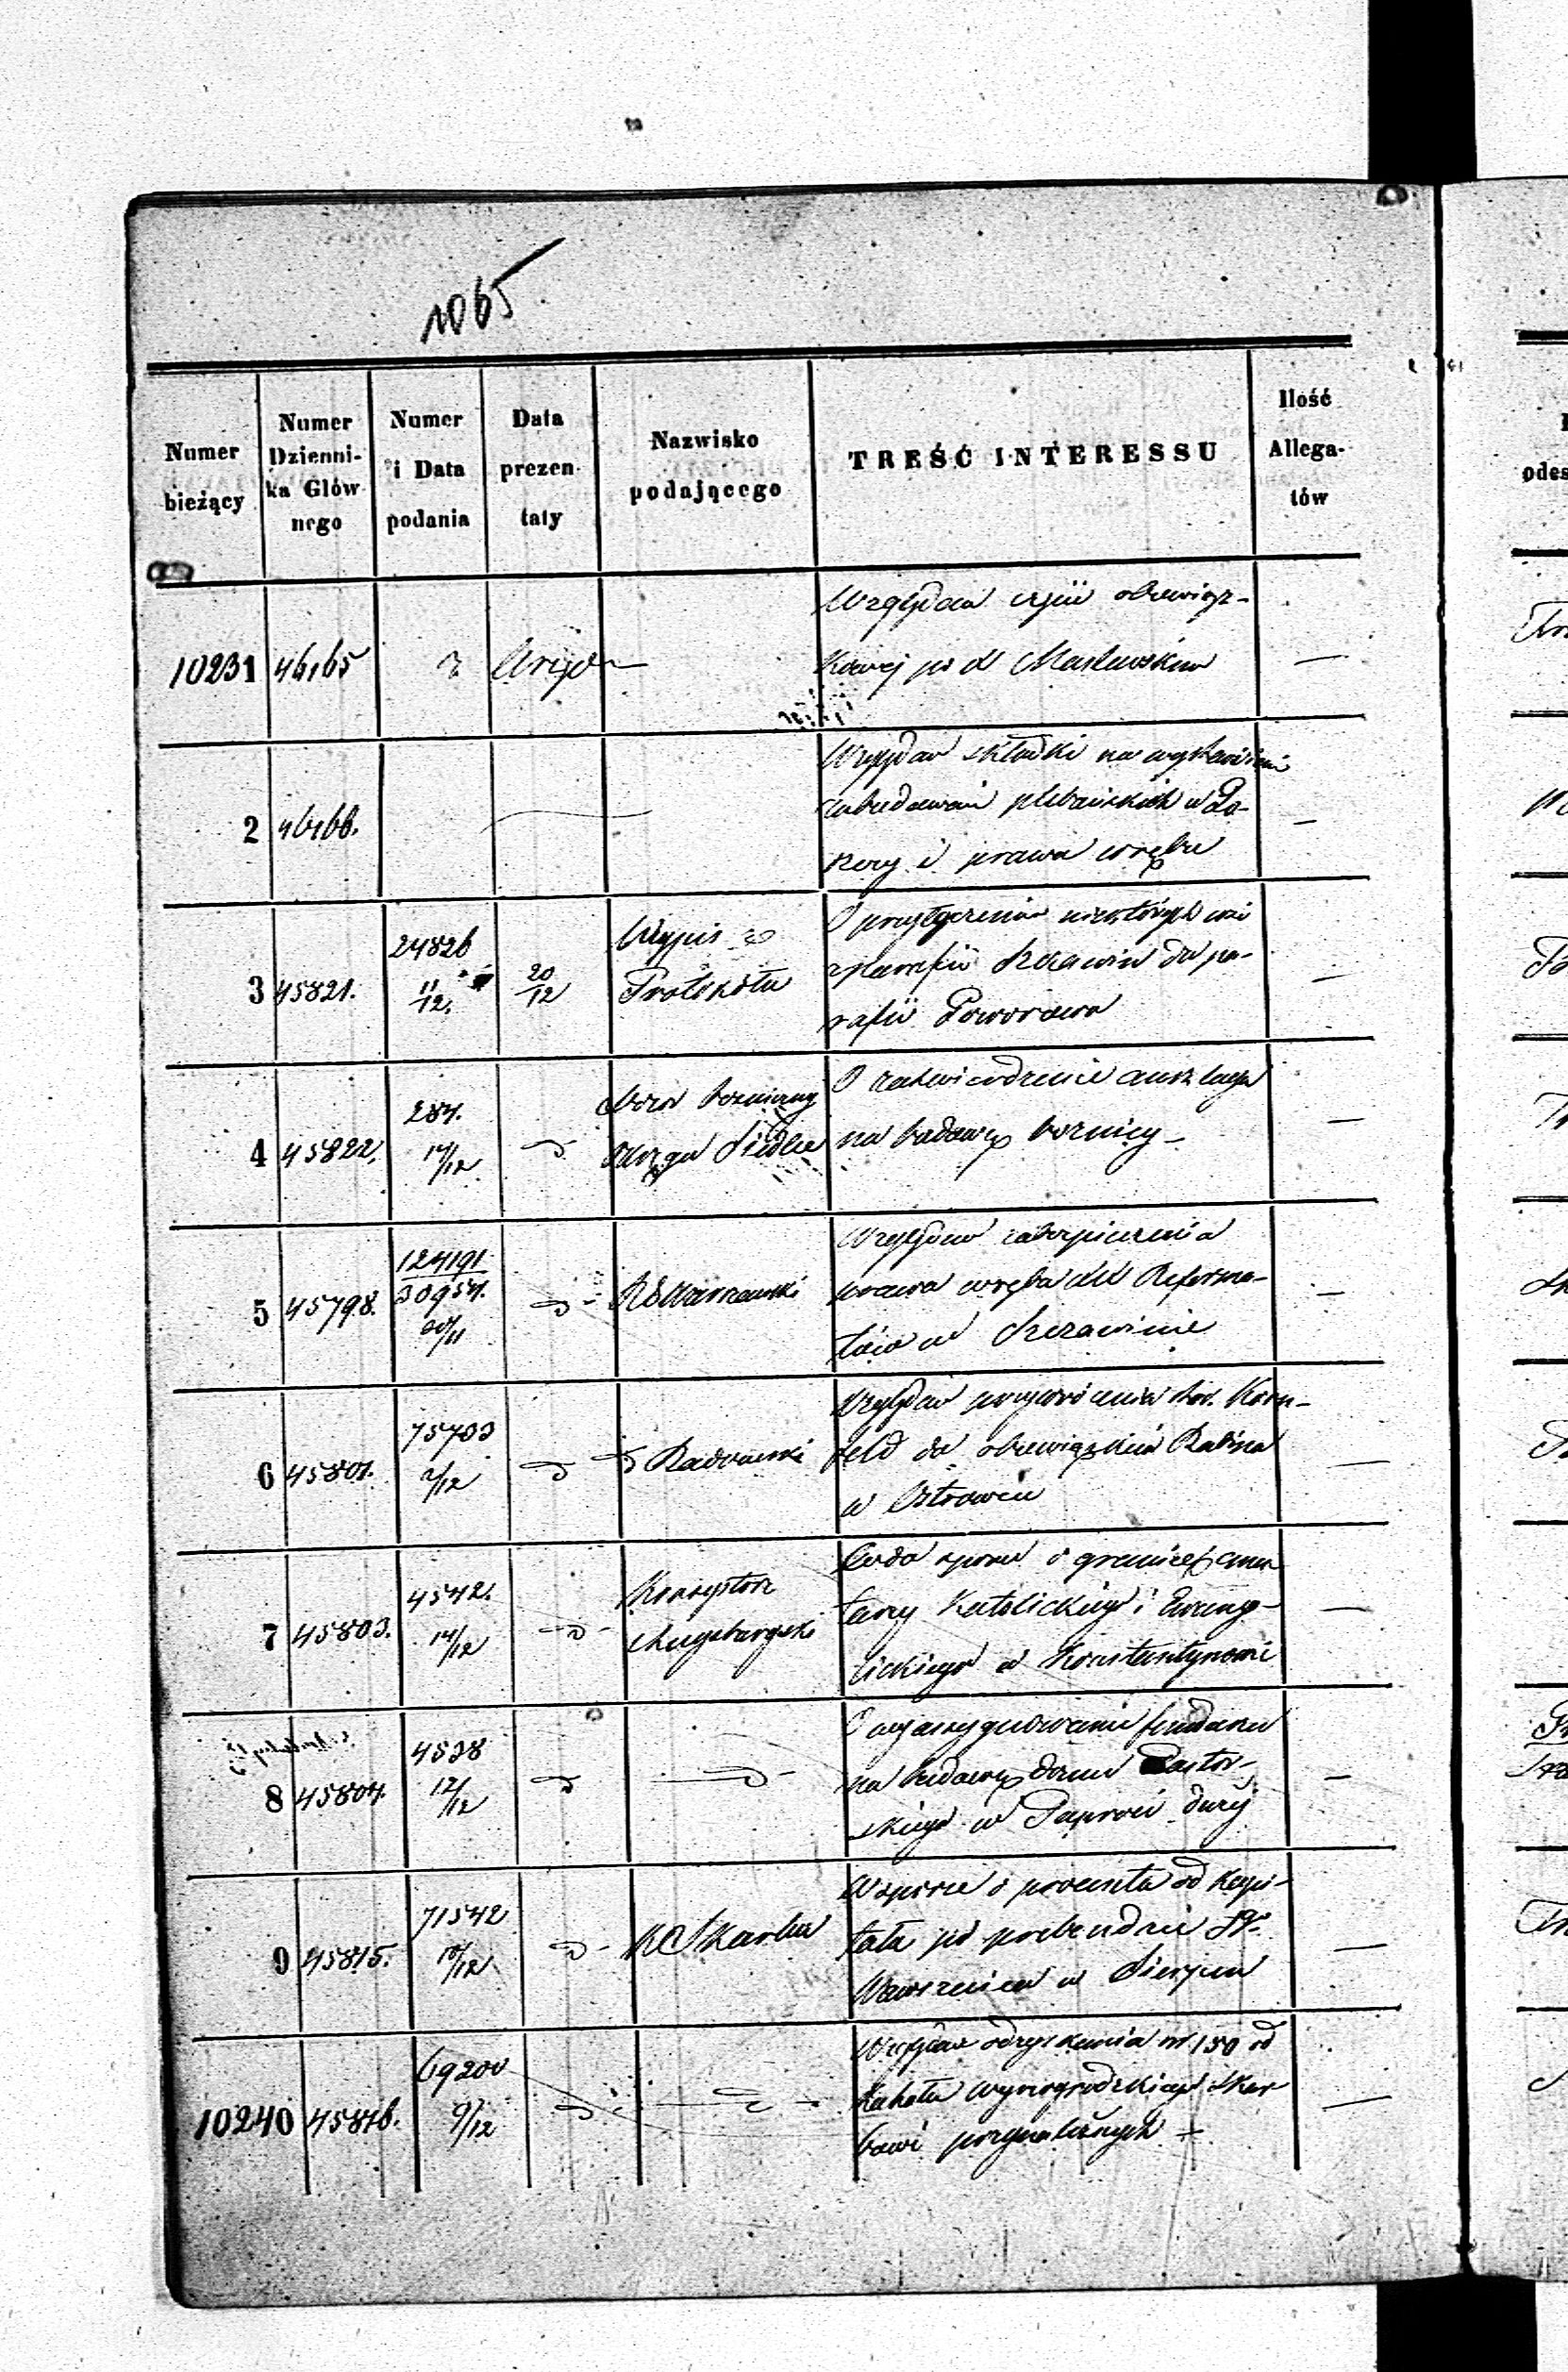 1065
Numer bieżący
Numer Dzienni-ka Głównego
Numer i Data podania
Data prezen taty
Nazwisko podającego
TREŚĆ INTERESSU
Ilość Allega-tów
10231 46165 z Urzęd Względem
kowej po
2 46166. Względem składki na wystawienie
zabudowań plebańskich w
i prawa wrębu
3 45821. 24826 11/12. 20/12 Wypis z
Protokółu
O przyłączeniu niektórych wsi
z parafii Szczawin do pa-
rafii
4 45822. 284. 14/12 Dozór bożniczny
Okręgu Siedlce
O zatwierdzenie anszlagu
na budowę bożnicy
5 45798. 124191/30954. 20/11 RG Warszawski
Względem zabezpieczenia
prawa wrębu dla Reforma-
tów w Szczawinie
6 45801. 75703 2/12 Radomski
Względem przywrócenia Korn-
feld do obowiązków Rabina
w Ostrowcu
7 45803. 4542. 14/12 Konsystorz
Augsburgski
Co do sporu o granicę cmen
tarzy Katolickiego i Ewang-
lickiego w Konstantynowie
8 45804. 4538 12/12
O wyassygnowanie funduszu
na budowę domu Pastor-
skiego w Paproci duży
9 45815. 71542 10/12 K Skarbu
W sporze o procenta od kapi-
tału po prebendzie Sgo
Wawrzeńca w Sierpcu
10240 45816. 69200 9/12
Względem odzyskania rs 150 od
Kahału Wyszogrodzkiego Skar
bowi przynależnych